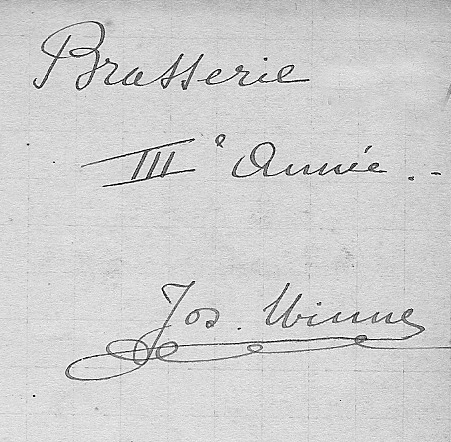 Brasserie
IIIe Année.-
Jos. Winne